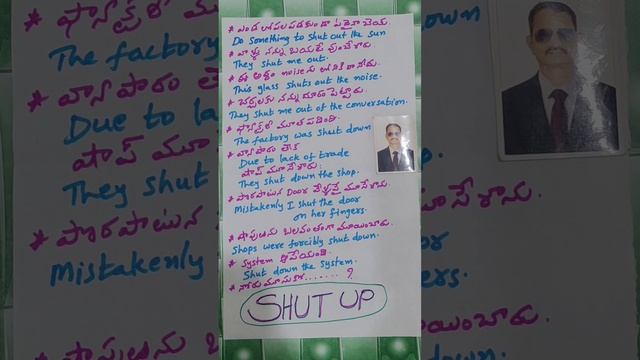 * ఎండ లోపల పడకుండా ఏదైనా చేయి.
Do something to shut out the sun
* వాళ్ళు నన్ను బయటే వుంచేశారు.
They shut me out.
* ఈ అద్దం noise ను లోనికి రానీదు.
This glass shuts out the noise.
నన్ను దూరం పెట్టారు.
They shut me out of the conversation.
* ఫ్యాక్టరీ మూత పడింది.
The factory was shut down
* వ్యాపారం లేక
Due to lack of trade
షాప్ మూసేశారు.
They shut down the shop.
* పొరపాటున Door వేళ్ళపై మూసేశాను.
Mistakenly I shut the door
on her fingers.
* షాపులను బలవంతంగా మూయించారు.
Shops were forcibly shut down.
* System ఆపేయండి.
Shut down the system.
* నోరు మూసుకో.......?
SHUT UP